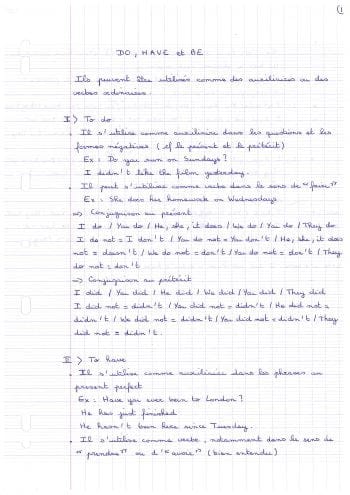 (1
DO, HAVE et BE
Ils peuvent être utilisés comme des auxiliaires ou des
verbes ordinaires.
I) To do
• Il s'utilise comme auxiliaire dans les questions et les
formes négatives (cf le présent et le prétérit)
Ex : Do you run on Sundays ?
I didn't like the film yesterday.
• Il peut s'utiliser comme verbe dans le sens de "faire"
Ex : She does her homework on Wednesdays
=> Conjugaison au présent
I do / You do / He, she, it does / We do / You do / They do
I do not = I don't / You do not = You don't / He, she, it does
not = doesn't / We do not = don't / You do not = don't / They
do not = don't
=> Conjugaison au prétérit
I did / You did / He did / We did / You did / They did
I did not = didn't / You did not = didn't / He did not =
didn't / We did not = didn't / You did not = didn't / They
did not = didn't.
II) To have
• Il s'utilise comme auxiliaire dans les phrases au
present perfect
Ex : Have you ever been to London ?
He has just finished
He hasn't been here since Tuesday.
• Il s'utilise comme verbe, notamment dans le sens de
"prendre" ou d'"avoir" (bien entendu)